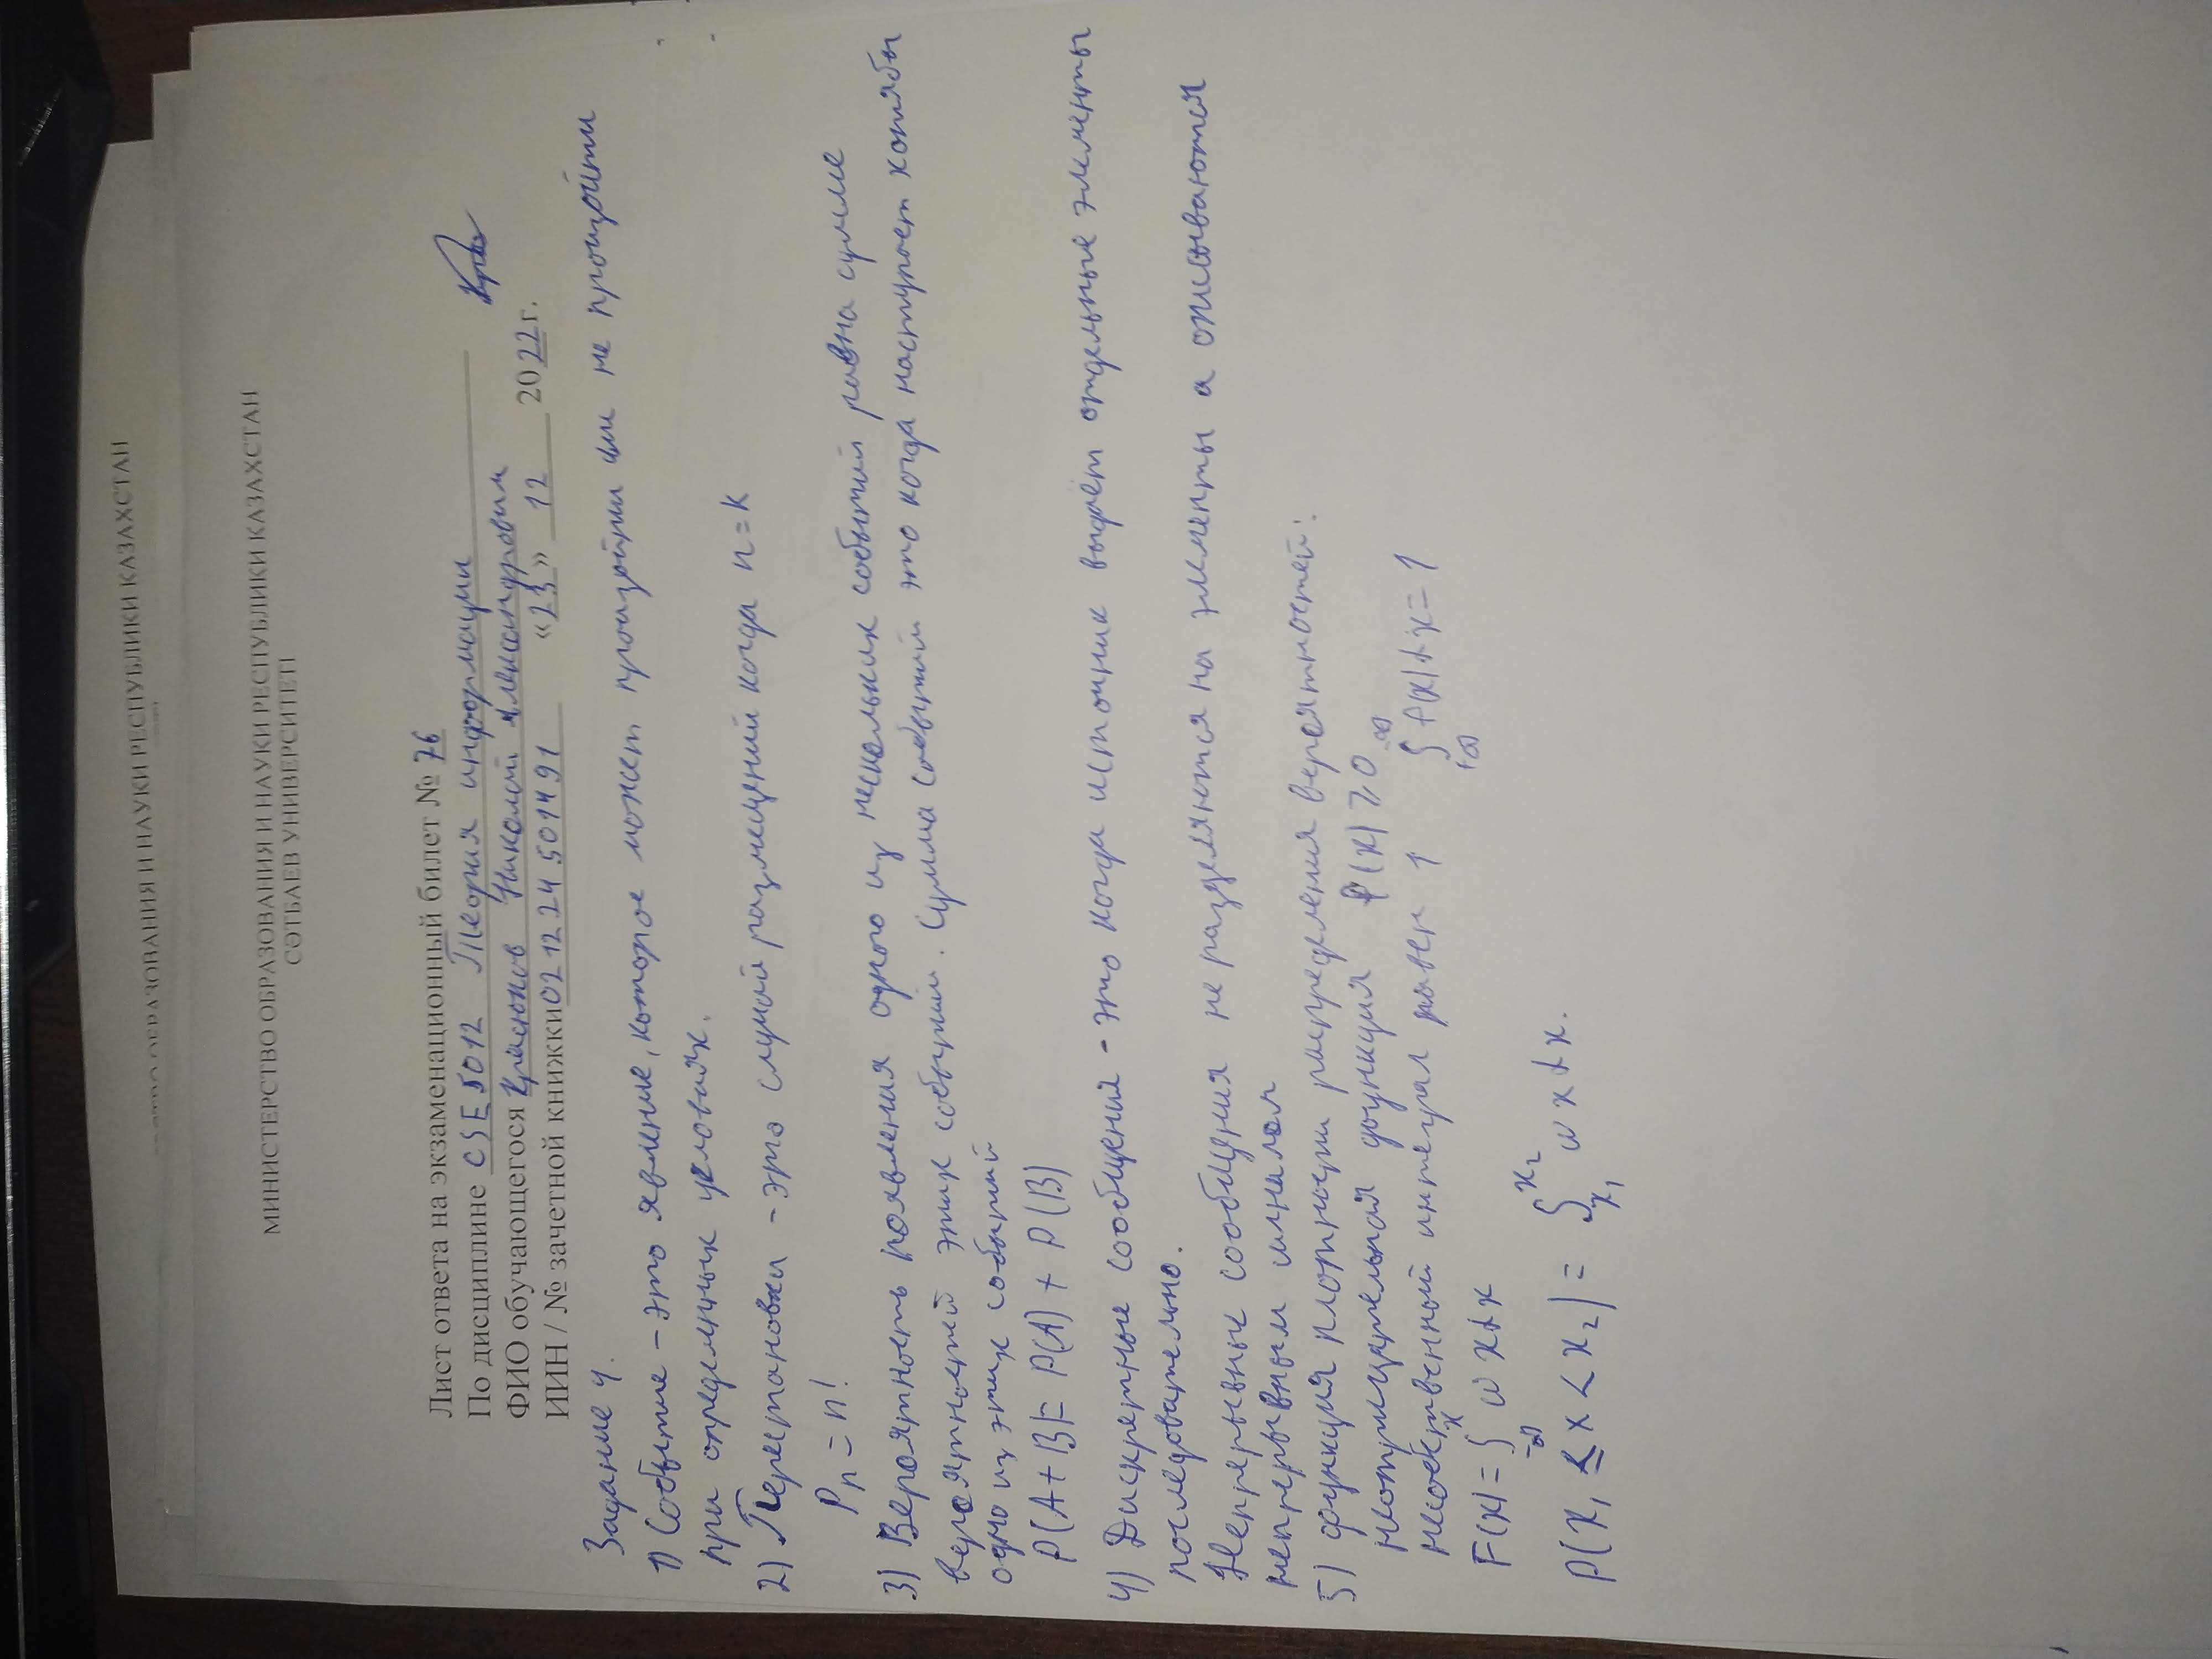 МИНИСТЕРСТВО ОБРАЗОВАНИЯ И НАУКИ РЕСПУБЛИКИ КАЗАХСТАН
МИНИСТЕРСТВО ОБРАЗОВАНИЯ И НАУКИ РЕСПУБЛИКИ КАЗАХСТАН
СӘТБАЕВ УНИВЕРСИТЕТІ
Лист ответа на экзаменационный билет № 76
По дисциплине CSE5012 Теория информации
ФИО обучающегося Красюков Николай Александрович
ИИН / № зачетной книжки 021224501491 «23» 12 2022 г.
Задание 4.
1) Событие – это явление, которое может произойти или не произойти
при определенных условиях.
2) Перестановки – это случай размещений когда n=k
Pn = n!
3) Вероятность появления одного из нескольких событий равна сумме
вероятностей этих событий. Сумма событий это когда наступает хотябы
одно из этих событий
P(A+B)= P(A) + P(B)
4) Дискретные сообщения – это когда источник выдаёт отдельные элементы
последовательно.
Непрерывные сообщения не разделяются на элементы а описываются
непрерывным сигналом
5) функция плотности распределения вероятностей:
неотрицательная функция f(x) ≥ 0
несобственный интеграл равен 1 ∫ f(x)dx = 1
F(x) = ∫ w x dx
P(x₁ ≤ x < x₂) = ∫ w x dx.